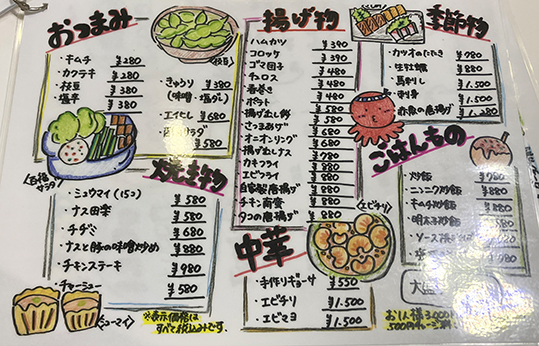 おつまみ
・キムチ ¥280
・カクテキ ¥280
・枝豆 ¥380
・塩辛 ¥380
(枝豆)
・きゅうり ¥380
(味噌・塩ダレ)
・エイヒレ ¥680
サラダ ¥580
揚げ物
・ハムカツ ¥390
・コロッケ ¥390
・ゴマ団子 ¥480
・チュロス ¥480
・春巻き ¥480
・ポテト ¥480
・揚げ出し餅 ¥580
・さつまあげ ¥580
・オニオンリング ¥580
・揚げ出しナス ¥580
・カキフライ ¥880
・エビフライ
・自家製唐揚げ ¥880
・チキン南蛮 ¥880
・タコの唐揚げ ¥880
季節物
・カツオのたたき ¥780
・生牡蠣 ¥880
・馬刺し ¥1.500
・刺身 ¥1.500
・赤魚の唐揚げ ¥1.280
焼き物
・シュウマイ(15コ) ¥580
・ナス田楽 ¥580
・チヂミ ¥680
・ナスと豚の味噌炒め ¥880
・チキンステーキ ¥980
・チャーシュー ¥580
(シューマイ)
※表示価格は
すべて税込みです。
中華
(エビチリ)
・手作りギョーザ ¥550
・エビチリ ¥1.500
・エビマヨ ¥1.500
ごはんもの
・炒飯 ¥780
・ニンニク炒飯 ¥880
・キムチ炒飯 ¥880
・明太子炒飯
・ソース
お1人様3.000
500円